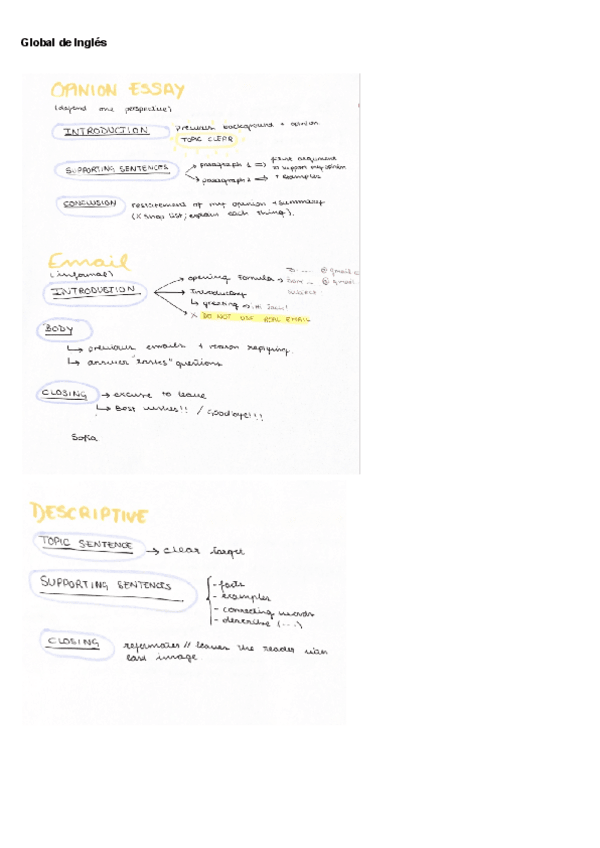 Global de Inglés
OPINION ESSAY
(defend one perspective)
INTRODUCTION previous background + opinion
TOPIC CLEAR
SUPPORTING SENTENCES → paragraph 1 ⇒ argument
to support my opinion
→ paragraph 2 ⇒ + examples
CONCLUSION restatement of my opinion + summary
(X shop list; explain each thing).
Email
(informal)
INTRODUCTION → opening formula → To: ...... @gmail.c
@gmail.
→ Introductory
↳ greeting
→ X DO NOT USE REAL EMAIL
BODY
↳ previous emails + reason replying.
↳ answer questions
CLOSING → excuse to leave
↳ Best wishes!! / Goodbye!!!
Sofia
DESCRIPTIVE
TOPIC SENTENCE → clear target
SUPPORTING SENTENCES - facts
- examples
- connecting words
- describe (...)
CLOSING // leaves the reader with
last image.